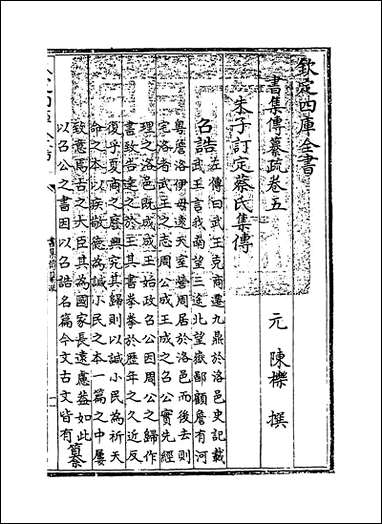 欽定四庫全書
書集傳纂疏卷五
元 陳櫟 撰
朱子訂定蔡氏集傳
召誥
左傳曰武王克商遷九鼎於洛邑史記載
武王言我南望三途北望嶽鄙顧詹有河
粤詹洛伊毋遠天室營周居於洛邑而後去則
宅洛者武王之志周公成王成之召公實先經
理之洛邑既成成王始政召公因周公之歸作
書致告達之於王其書拳拳於歴年之久近反
復乎夏商之廢興究其歸則以諴小民為祈天
命之本以疾敬德為諴小民之本一篇之中屢
致意焉古之大臣其為國家長遠慮蓋如此
以召公之書因以召誥名篇今文古文皆有
纂